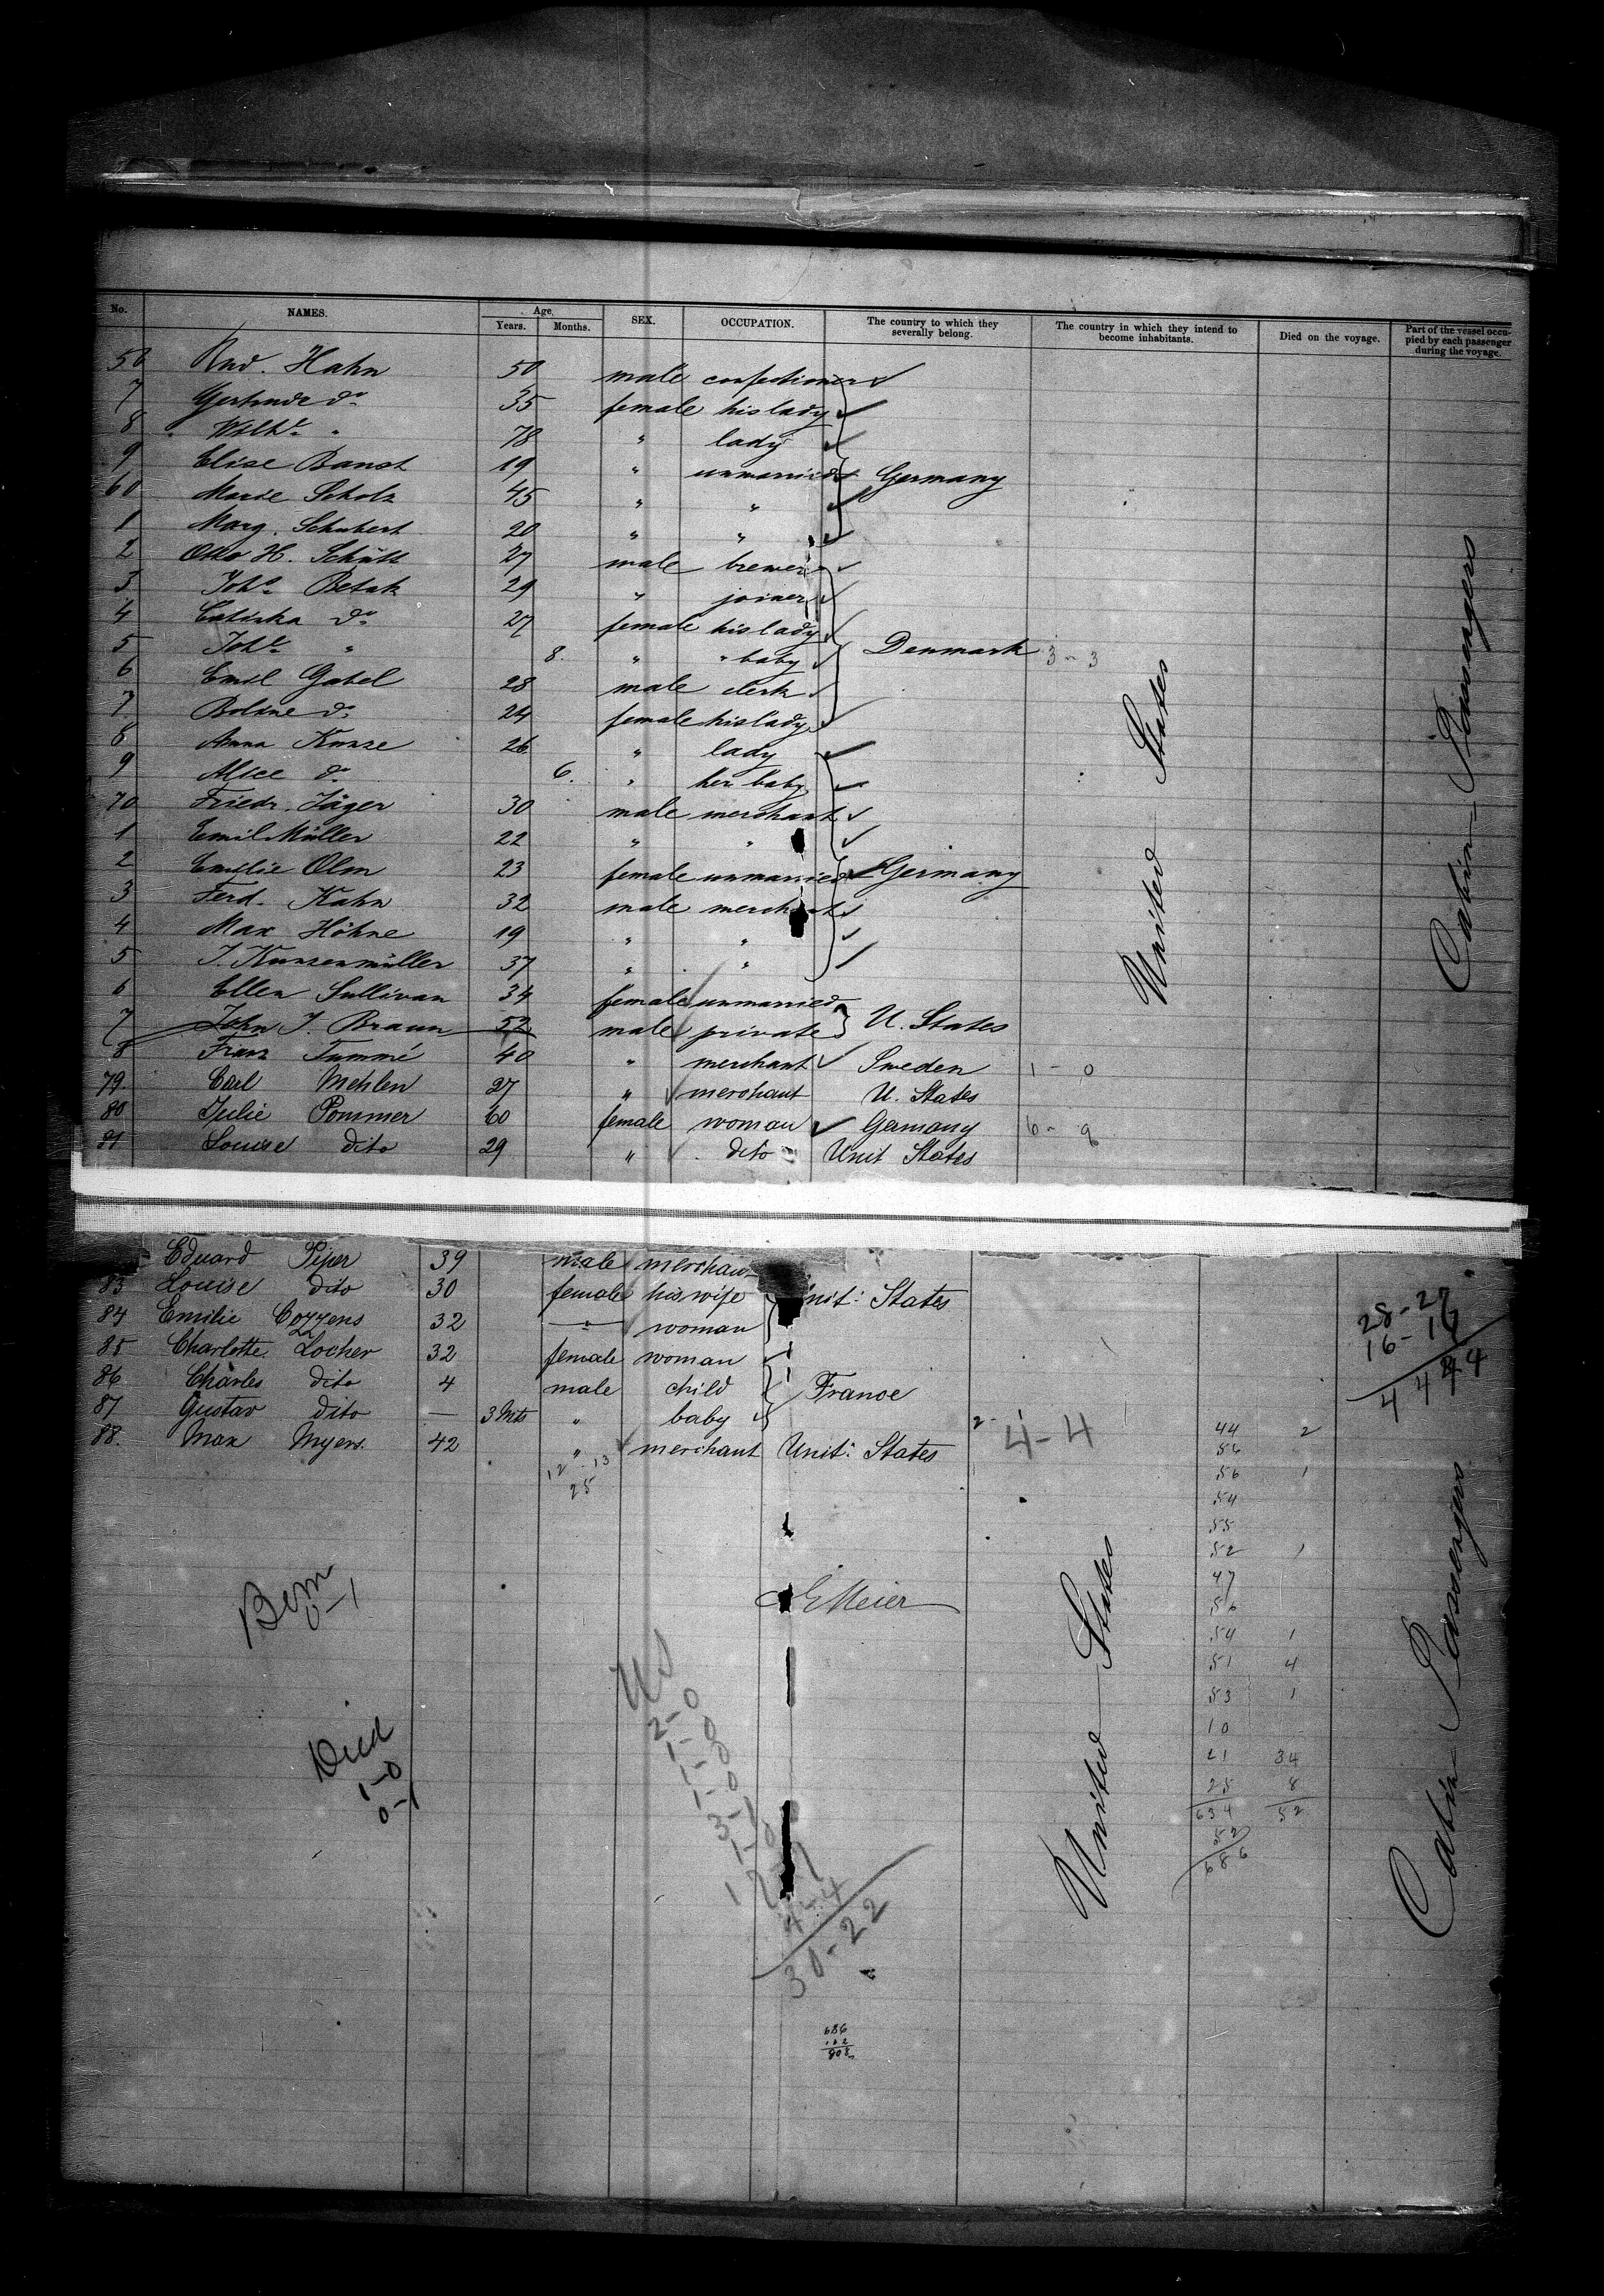 No. NAMES. Age. Years. Months. SEX. OCCUPATION. The country to which they severally belong. The country in which they intend to become inhabitants. Died on the voyage. Part of the vessel occupied by each passenger during the voyage.
58 Rud. Hahn 50 male confectioner
7 Gertrude do 35 female his lady
8 " 78 " lady
9 Elise Banst 19 " unmarried Germany
60 Marie Scholz 45 " "
1 Marg. Schubert 20 " "
2 Otto H. Schütt 27 male brewer
3 Johs Betak 29 " joiner
4 do 27 female his lady
5 " 8. " " baby Denmark 3-3
6 Emil Gabel 28 male clerk
7 Boline do 24 female his lady
8 Anna Kunze 26 " lady
9 Alice do 6. " her baby
70 Friedr. Jäger 30 male merchant
1 Emil Müller 22 " "
2 Emilie Olm 23 female unmarried Germany
3 Ferd. Kahn 32 male merchant
4 Max Höhne 19 " "
5 J. Kunzenmüller 37 " "
6 Ellen Sullivan 34 female unmarried
7 John J. Braun 52 male private U. States
8 Franz Tummé 40 " merchant Sweden 1-0
79. Carl Mehlen 27 " merchant U. States
80 Julie Pommer 60 female woman Germany 6-9
81 Louise dito 29 " dito Unit States
United States
Cabin Passengers
Eduard Piper 39 male
83 Louise dito 30 female his wife Unit: States
84 Emilie Cozzens 32 " woman
85 Charlotte Locher 32 female woman
86 Charles dito 4 male child France
87 Gustav dito — 3 Mts " baby
88. Max Myers. 42 " merchant Unit: States
12-13
25
4-4
28-27
16-16
44 44
44 2
54
56 1
54
55
52 1
47
56
54 1
51 4
53 1
10
21 34
25 8
634 52
52
686
Born
0-1
Died
1-0
0-1
EMeier
US
2-0
1-0
1-0
1-0
3-1
1-0
4-4
30-22
United States
Cabin Passengers
686